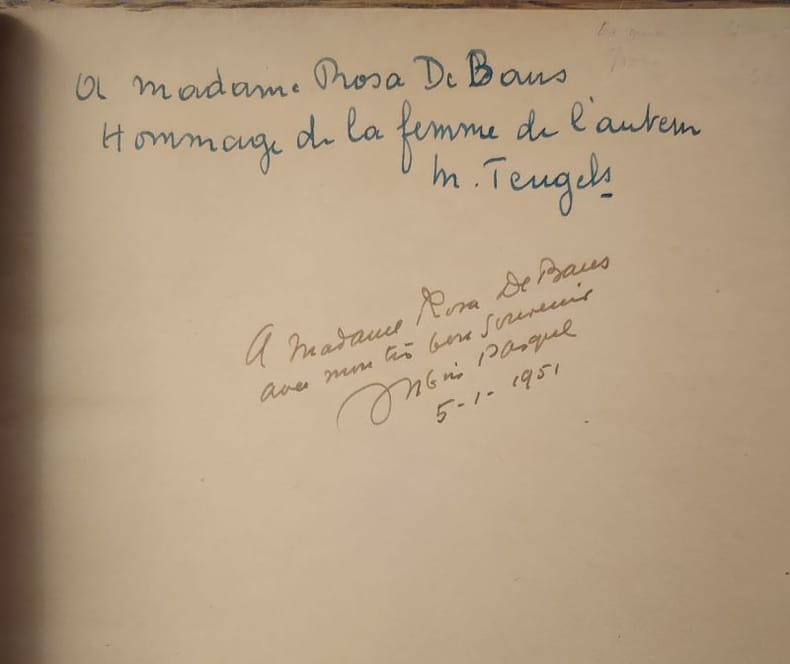 A Madame Rosa De Baus
Hommage de la femme de l'auteur
M. Teugels
A Madame Rosa De Baus
avec mon très bon souvenir
5-1-1951